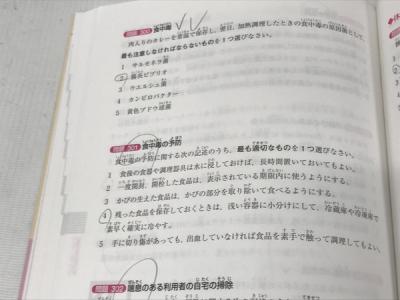 問題 300 食中毒
肉入りのカレーを常温で保存し、翌日、加熱調理したときの食中毒の原因菌として、
最も注意しなければならないものを1つ選びなさい。
1 サルモネラ菌
2 腸炎ビブリオ
3 ウエルシュ菌
4 カンピロバクター
5 黄色ブドウ球菌
問題 301 食中毒の予防
食中毒の予防に関する次の記述のうち、最も適切なものを1つ選びなさい。
1 食後の食器や調理器具は水に浸しておけば、長時間置いておいてもよい。
2 一度開封、開栓した食品は、表示されている期限内に使うようにする。
3 かびの生えた食品は、かびの部分を取り除いて食べるようにする。
4 残った食品を保存しておくときは、浅い容器に小分けにして、冷蔵庫や冷凍庫で
素早く確実に冷やす。
5 手に切り傷があっても、出血していなければ食品を素手で触って調理してもよい。
問題 302 喘息のある利用者の自宅の掃除